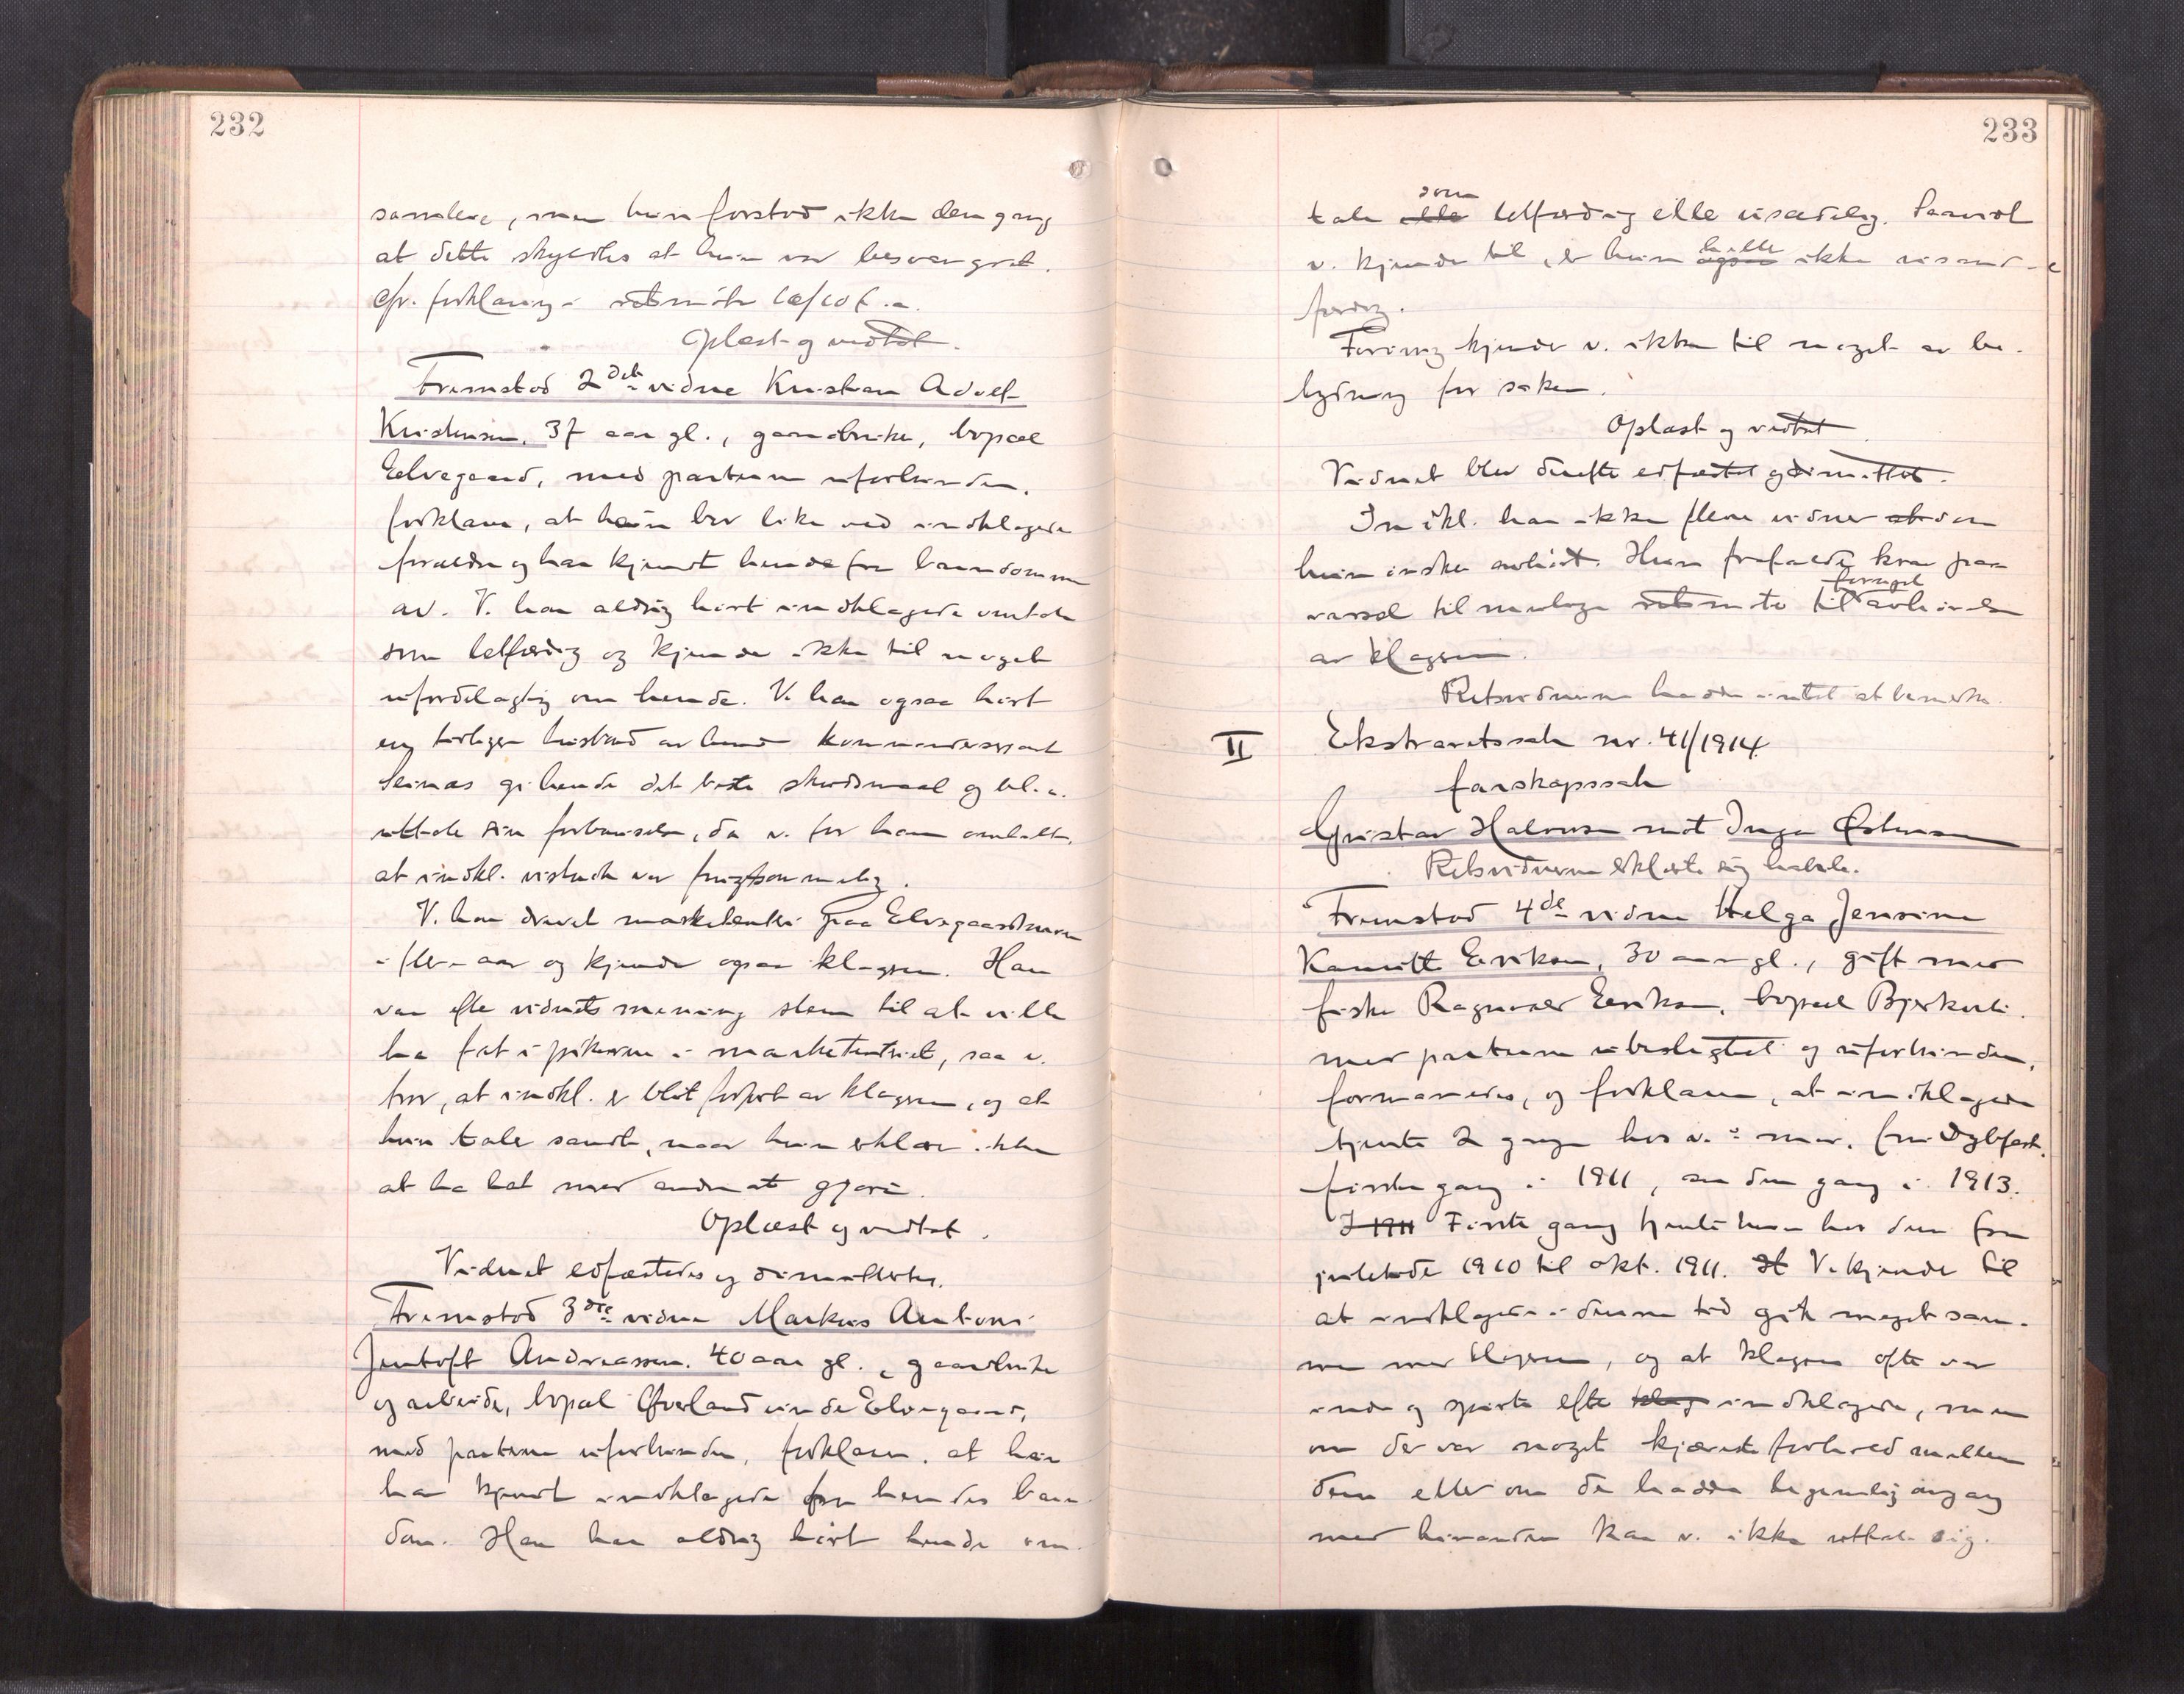 232
samleie, men hun forstod ikke den gang
at dette skyldtes at hun var besvangret.
Cfr. forklaring i retsmøte 10/10 f.a.
Oplæst og vedtat.
Fremstod 2det vidne Kristian Adolf
Kristensen, 37 aar gl., gaardbruker, bopæl
Elvegaard, med parterne uforbunden,
forklarer, at han bor like ved indklagede
forældre og har kjendt hende fra barndommen
av. V. har aldrig hørt indklagede omtale
som letfærdig og kjender ikke til noget
ufordelagtig om hende. V. har ogsaa hørt
en tidligere husbond av hende kommandersergeant
Seines gi hende det beste skudsmaal og bl.a.
uttale sin forbauselse, da v. for ham omtalte,
at indkl. visstnok var frugtsommelig.
V. har drevet marketenteri paa Elvegaardsmoen
i flere aar og kjender ogsaa klageren. Han
var efter vidnets mening slem til at ville
ha fat i pikerne i marketenteriet, saa v.
tror, at indkl. er blit forført av klageren, og at
hun taler sandt, naar hun erklærer ikke
at ha hat med andre at gjøre.
Oplæst og vedtat.
Vidnet edfæstedes og dimitertes.
Fremstod 3die vidne Markus Antoni
Jentoft Andreassen, 40 aar gl., gaardbruker
og arbeider, bopæl Øverland under Elvegaard,
med parterne uforbunden, forklarer, at han
har kjendt indklagede fra hendes barn-
dom. Han har aldrig hørt hende om-
233
som
tale elle letfærdig eller usædelig. Saavidt
heller
v. kjender til, er hun ogsaa ikke usand-
færdig.
Forøvrig kjender v. ikke til noget av be-
tydning for saken.
Oplæst og vedtat.
Vidnet blev derefter edfæstet og dimittert.
Indkl. har ikke flere vidner at som
hun ønsker avhørt. Hun frafaldt krav paa
fornyet
varsel til mulige retsmøte til avhørelse
av klageren.
Retsvidnerne hadde intet at bemerke.
II Ekstraretssak nr. 41/1914
farskapssak
Gustav Halvorsen mot Inga Østensen
Retsvidnerne erklærte sig habile.
Fremstod 4de vidne Helga Jensine
Kamitte Eriksen, 30 aar gl., gift med
fisker Ragnvald Eriksen, bopæl Bjerkvik.
med parterne ubeslegtet og uforbunden,
formanedes, og forklarer, at indklagede
tjente 2 ganger hos v.s mor, fru Dybfest,
første gang i 1911, anden gang i 1913.
I 1911 Første gang tjente hun hos dem fra
juletide 1910 til okt. 1911. At V. kjender til
at indklagede i denne tid gik meget sam-
men med klageren, og at klageren ofte var
inde og spurte efter klag indklagede, men
om der var noget kjæresteforhold mellem
dem eller om de hadde legemlig omgang
med hinanden kan v. ikke uttale sig.